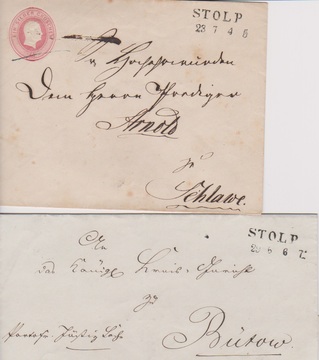 STOLP
23 7 4 5
Sr Hochehrwürden
Dem Herrn Prediger
Arnold
zu
Schlawe.
STOLP
An
das Königl. Kreis-Gericht
zu
Bütow